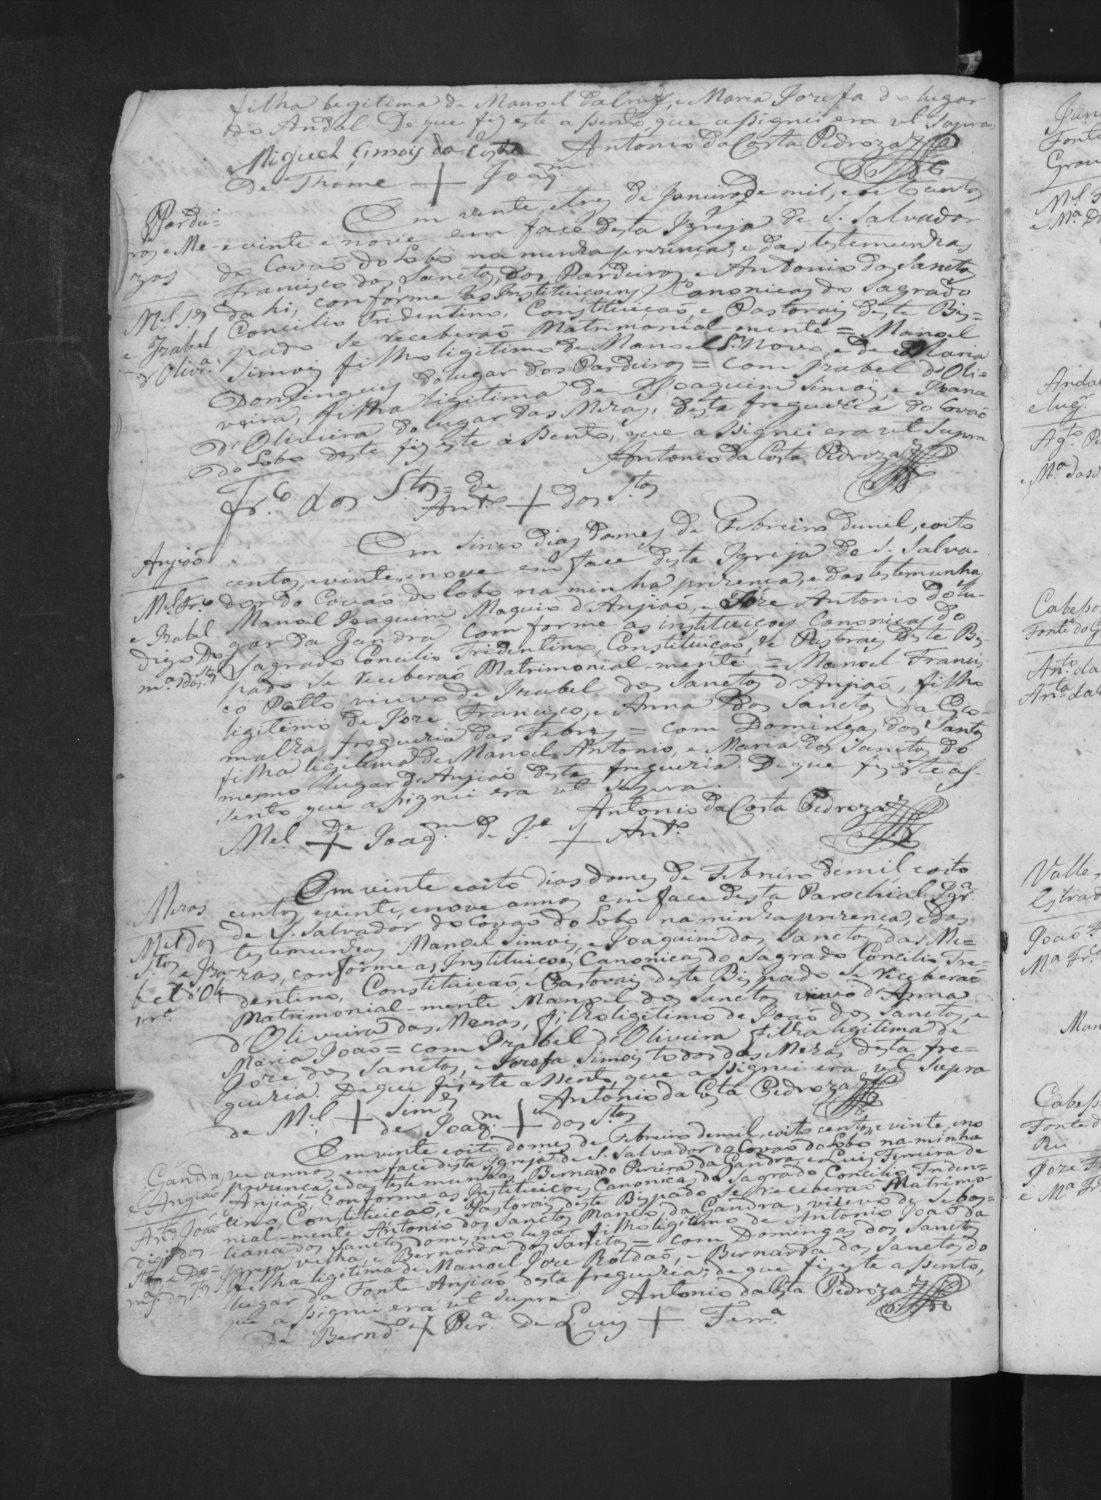 filha legitima de Manoel da Cruz, e Maria Jozefa do lugar
do Andal De que fiz este asento que asignei era ut Supra
Miguel Simois da Costa Antonio da Costa Pedroza
De Thome + Joaqm
Pardei-
ros e Me-
zas
Ml S.
e Izabel
d'Olivra
Em vinte, e tres de Janeiro de mil, e oito Centos
e vinte e nove em face desta Igreja de S. Salvador
do Covão do Lobo na minha prezença, e das testemunhas
Francisco dos Sanctos, dos Pardeiros, e Antonio dos Sanctos
da hi, conforme as Instituiçoins Canonicas do Sagrado
Concilio Tridentino, Constituição, e Pastorais deste Bis=
pado se receberaõ Matrimonial mente = Manoel
Simois filho legitimo de Manoel S. Novo, e de Maria
Domingues do lugar dos Pardeiros = com Izabel d'Oli-
veira, filha legitima de Joaquim Simois, e Joana
d'Oliveira do lugar das Mezas, desta freguezia do Covaõ
do Lobo deste fiz este asento, que asignei era ut Supra
Antonio da Costa Pedroza
Fr.co dos Stos = de Anto + dos Stos
Anjiaõ
Ml Fr.co
e Izabel
digo Do
ma dos Stos
Em sinco dias do mes de Febreiro de mil, e oito
centos, e vinte, e nove em face desta Igreja de S. Salva-
dor do Covaõ do Lobo na minha prezença, e das testemunhas
Manoel Joaquim Maquio d'Anjiaõ, e Joze Antonio do lu-
gar da Gandra conforme as instituiçoes Canonicas do
Sagrado Concilio Tridentino, Constituicaõ, e Pastorais deste Bis
pado se receberaõ Matrimonial-mente = Manoel Francis
co Patto viuvo de Izabel dos Sanctos d'Anjiaõ, filho
legitimo de Joze Francisco, e Anna dos Sanctos da Coco-
malza freguezia das Febres = com Domingas dos Santos
filha legitima de Manoel Antonio, e Maria dos Sanctos do
mesmo lugar de Anjiaõ desta freguezia. De que fiz este as-
sento que asignei era ut Supra.
Antonio da Costa Pedroza
De Mel + Joaqm de Je + Anto
Mezas
Mel dos
Stos e Iza
bel d'Oli
vra
Em vinte e oito dias do mes de Febreiro de mil e oito
centos, e vinte, e nove annos em face desta Parochial Igra
de S. Salvador do Covaõ do Lobo na minha prezença, e das
testemunhas Manoel Simois, e Joaquim dos Sanctos das Me=
zas, conforme as Instituiçoes Canonicas do Sagrado Concilio Tri-
dentino, Constituicaõ, e Pastorais deste Bispado se receberaõ
Matrimonial-mente Manoel dos Sanctos viuvo d'Anna
d'Oliveira das Mezas, filho legitimo de Joaõ dos Sanctos, e
Maria Joaõ = com Izabel d'Oliveira filha legitima de
Joze dos Sanctos, e Jozefa Simois todos das Mezas desta fre-
guezia. De que fiz este asento, que asignei era ut Supra
Antonio da Costa Pedroza
de Mel + Simois de Joaqm + dos Stos
Gandra,
e Angiaõ
Anto Joaõ
digo dos
Stos e Do=
mas dos Stos
Em vinte e oito do mes de Febreiro de mil, e oito centos, e vinte, e no
ve annos em face desta Igreja de S. Salvador do Covaõ do Lobo na minha
prezença, e das testemunhas Bernardo Pereira da Gandra, e Luis Ferreira de
Anjiaõ, conforme as Instituiçoes Canonicas do Sagrado Concilio Triden-
tino, Constituicaõ, e Pastorais deste Bispado se receberaõ Matrimo-
nial-mente Antonio dos Sanctos Manco, da Gandra, viuvo de Sebas-
tiana dos Sanctos do mesmo lugar filho legitimo de Antonio Joaõ da
Igreja velha, e Bernarda dos Sanctos = com Domingas dos Sanctos
filha legitima de Manoel Joze Roldaõ, e Bernarda dos Sanctos do
lugar da Fonte-Anjiaõ desta freguezia; de que fiz este asento,
que asignei era ut Supra Antonio da Costa Pedroza
De Bernd.o + Per.a De Luis + Ferr.a